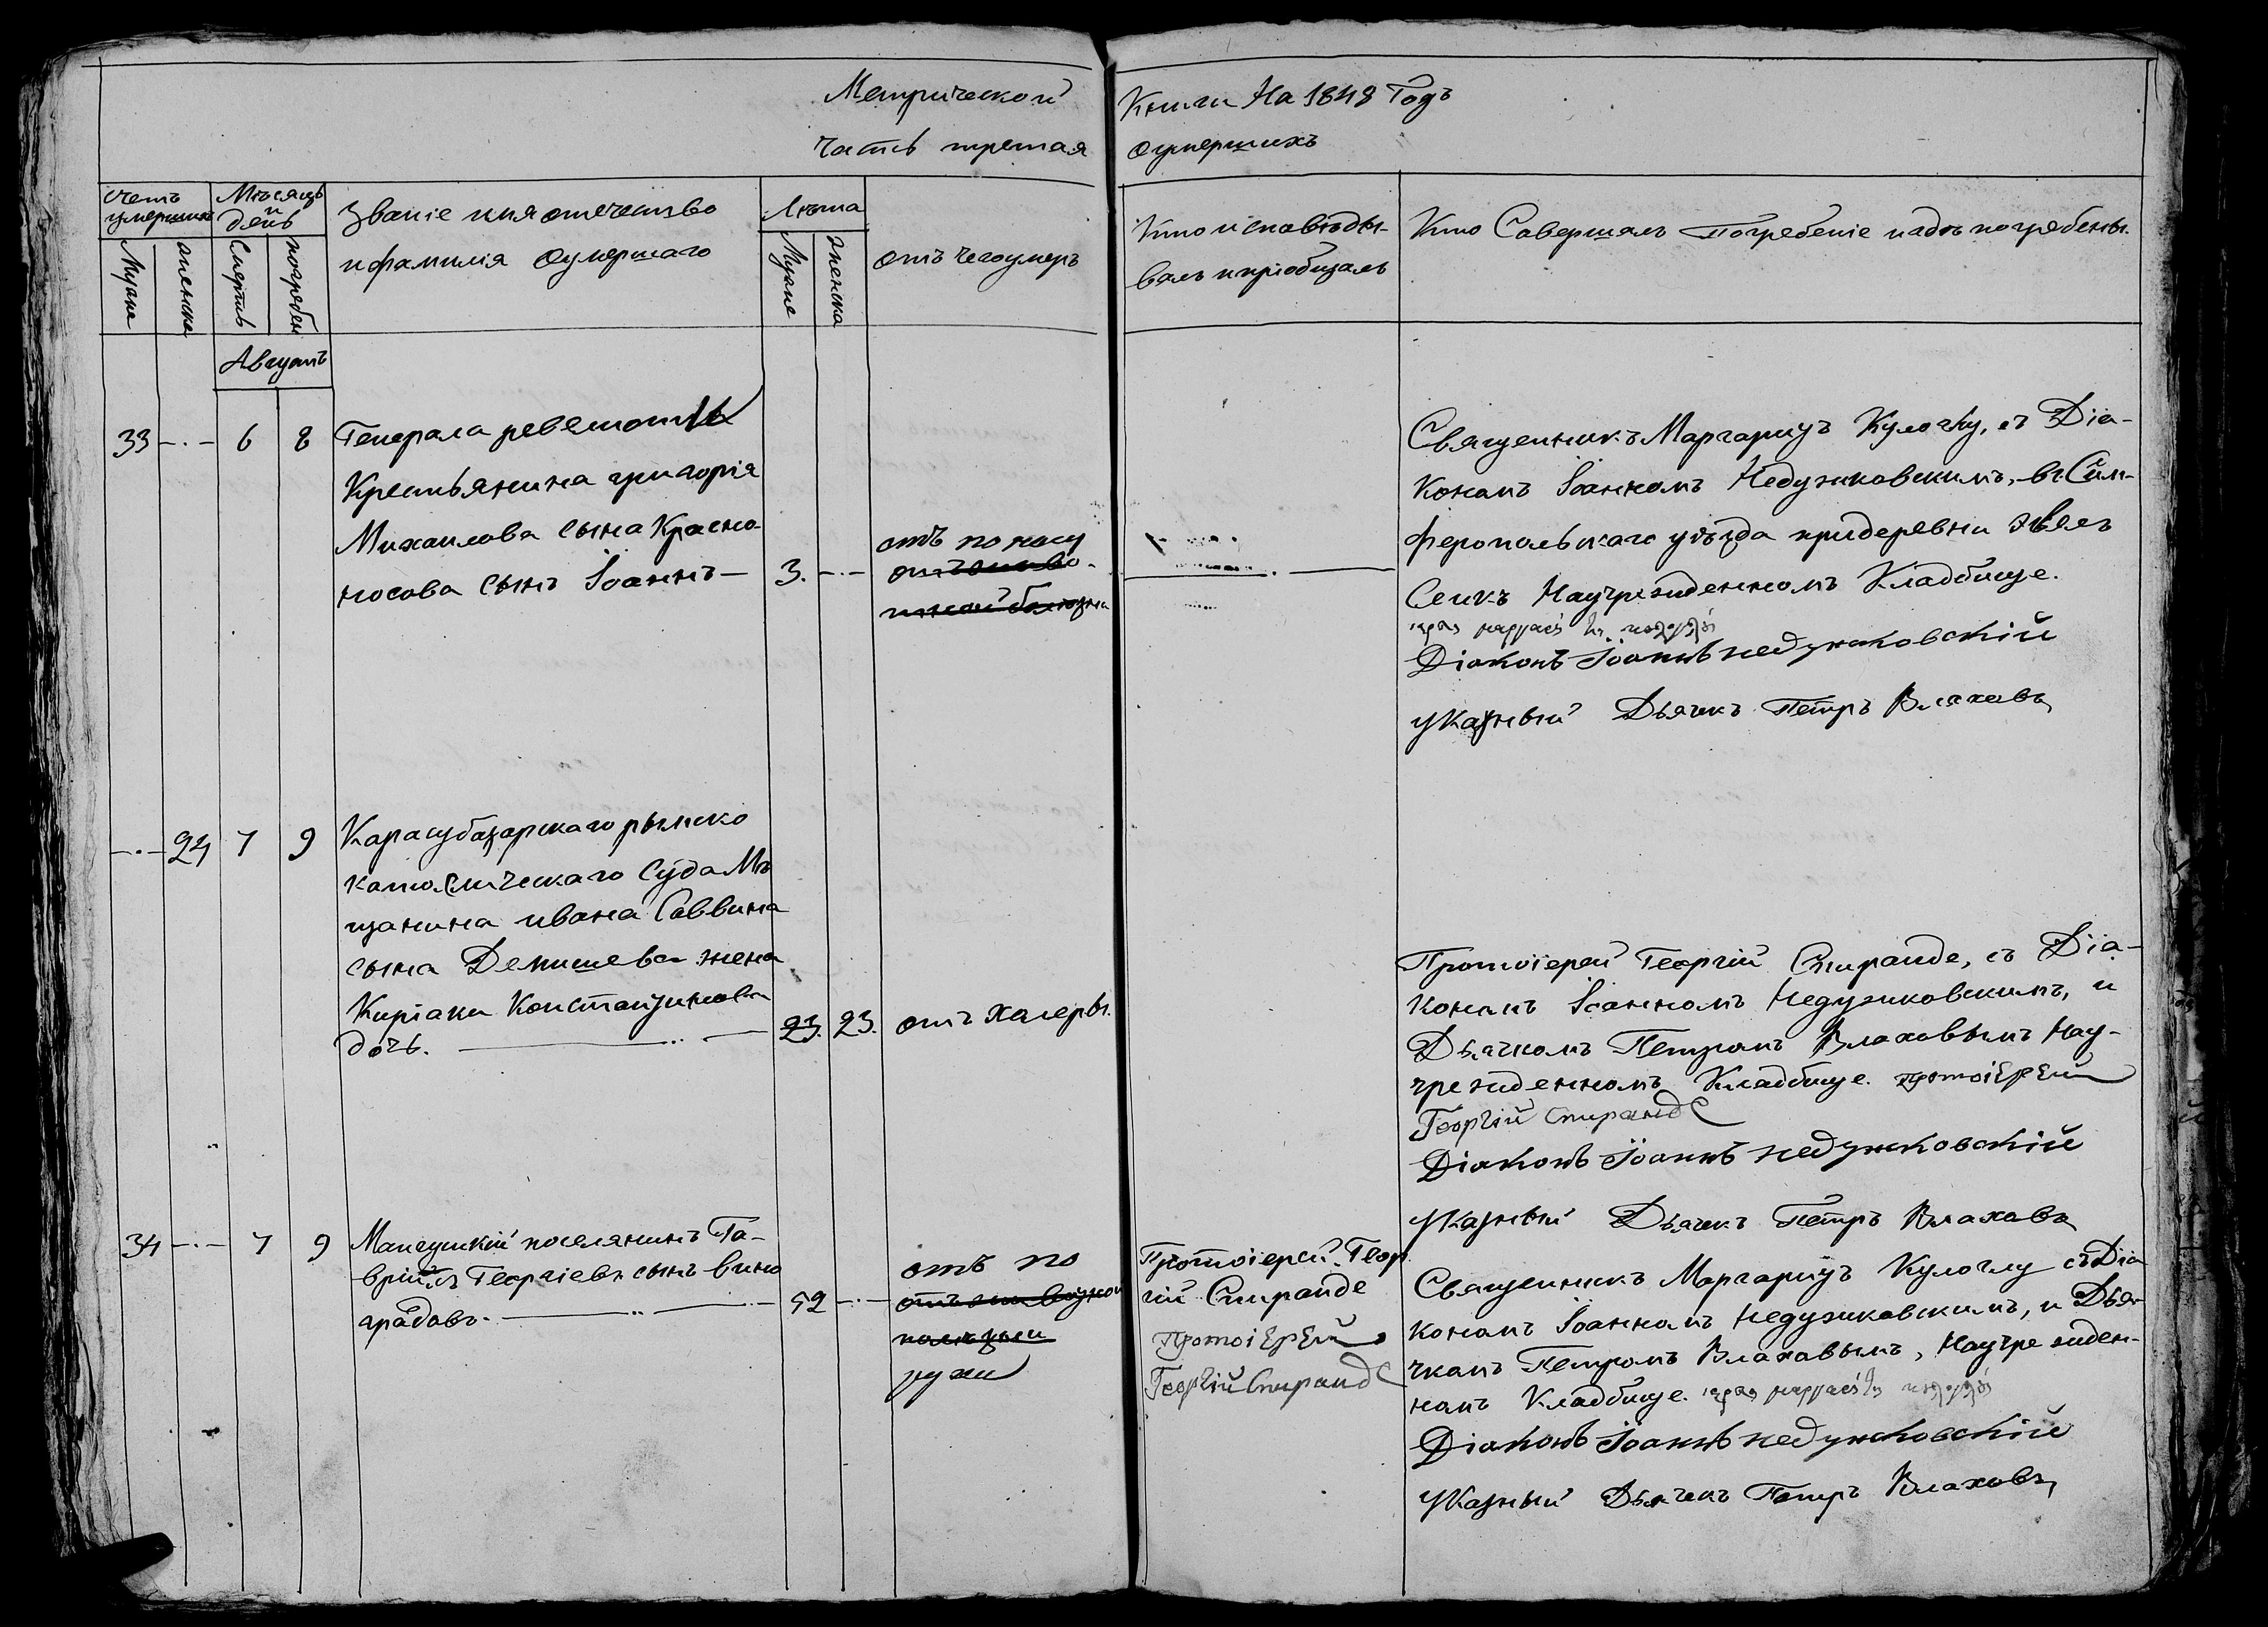 Метрической Книги На 1848 Годъ
Часть третая оумершихъ
Счетъ умершихъ
Мѣсяцъ и день
Званіе имя отечество
и фамилія оумершаго
Лѣта
отъ чего умеръ
Кто исповѣды-
валъ и пріобщалъ
Кто Совершалъ Погребеніе и гдѣ погребены.
Мужие
женска
Смерть
погребен
Мужие
женска
Августъ
33 6 8
Генерала
Крестьянина григорія
Михаилова сына Красно
носова сынъ Іоаннъ —
3.
отъ поносу
Священникъ Маргаритъ Кулочлу, съ Діа-
кономъ Іоанномъ Недузиковскимъ, въ Сим-
феропольскаго уѣзда придеревни
Сеикъ Научрежденномъ Кладбище.
Діаконъ Іоаннъ недужковскій
указный Дьячкъ Петръ Влаховъ
24 7 9
Карасубазарскаго рымско
католическаго Суда Мѣ
щанина ивана Саввина
сына Демишева жена
Киріаки Константинова
дочь.
23. 23.
отъ халеры.
Протоіерей Георгій Спиранде, съ Діа-
кономъ Іоанномъ Недузиковскимъ, и
Дьячкомъ Петромъ Влаховымъ Нау-
чрежденномъ Кладбище. протоіерей
Георгій Спиранде
Діаконъ Іоаннъ недужковскій
указный Дьячекъ Петръ Влаховъ
34 7 9
Мангушкій поселянинъ Га-
вріилъ Георгіевъ сынъ вино
градовъ.
52
отъ по
Протоіерей Геор
гій Спиранде
Протоіерей
Георгій Спиранде
Священникъ Маргаритъ Кулочлу съ Діа
кономъ Іоанномъ Недузиковскимъ, и Дья-
чкомъ Петромъ Влаховымъ, Научрежден-
номъ Кладбище.
Діаконъ Іоаннъ недужковскій
указный Дьячекъ Петръ Влаховъ